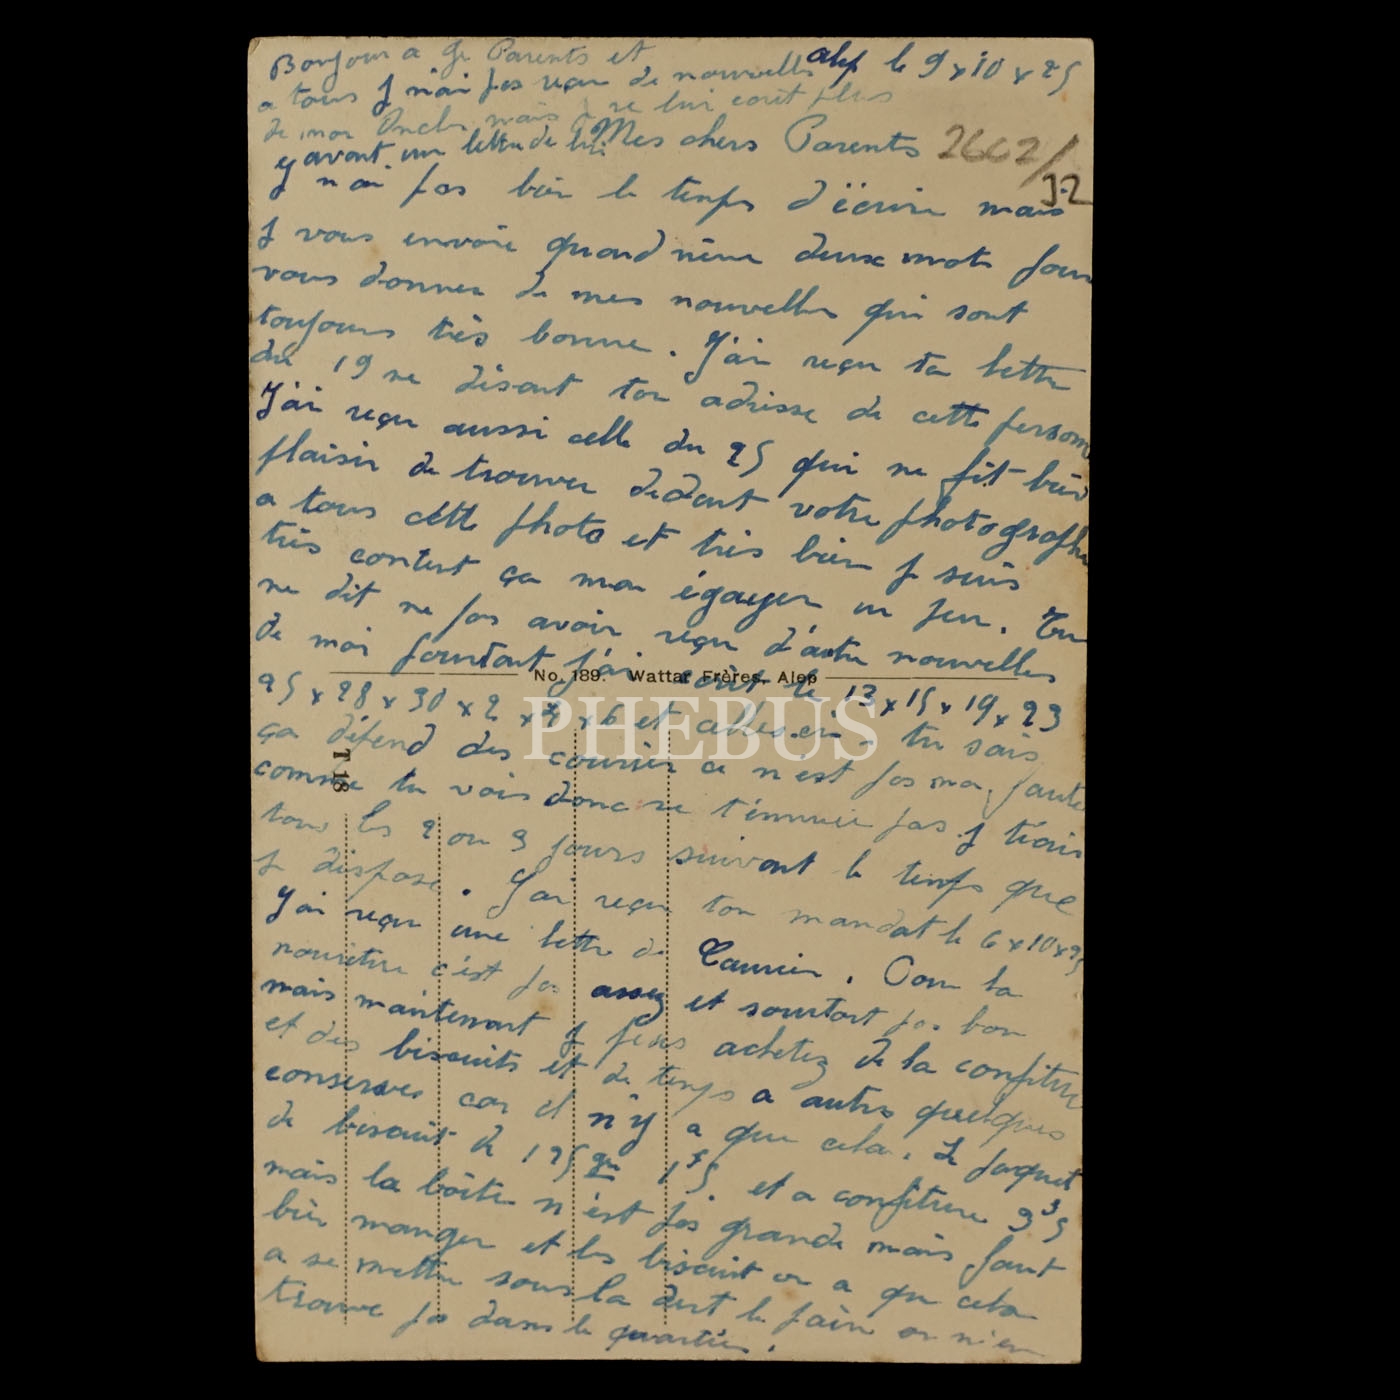 Bonjour a Gr Parents et
a tous J n'ai pas reçu de nouvelle
de mon Oncle mais J ne lui ecrit plus
y avant un lettre de lui
Alep le 9 x 10 x 25
Mes chers Parents
2662/
J-2
J n ai pas bien le temps d'écrire mais
J vous envoie quand même deux mots pour
vous donner de mes nouvelles qui sont
toujours très bonne. J'ai reçu ta lettre
du 19 me disant ton adresse de cette personne
J'ai reçu aussi celle du 25 qui me fit bien
plaisir de trouver dedant votre photographie
a tous cette photo et très bien J suis
très content ça mon égayer un peu. Tu
me dit ne pas avoir reçu d'autre nouvelles
de moi pourtant j'ai ecrit le 13 x 15 x 19 x 23
25 x 28 x 30 x 2 x 4 x 6 et celles.ci - tu sais
ça défend des courrier ce n'est pas ma faute
comme tu vois donc ne t'ennuie pas J t'écris
tous les 2 ou 3 jours suivant le temps que
J dispose. J'ai reçu ton mandat le 6 x 10 x 25
J'ai reçu une lettre de Pour la
nouriture c'est pas assez et sourtout pas bon
mais maintenant J peus achetez de la confiture
et des biscuits et de temps a autre quelques
conserves car il n'y a que cela. Le paquet
de biscuit de 125 gr 1 F 5. et a confiture 3 F 5
mais la boîte n'est pas grande mais faut
bien manger et les biscuit on a que cela
a se mettre sous la dent le pain on n'en
trouve pas dans le quartier.
No. 189. Wattar Frères, Alep
T 18
PHEBUS